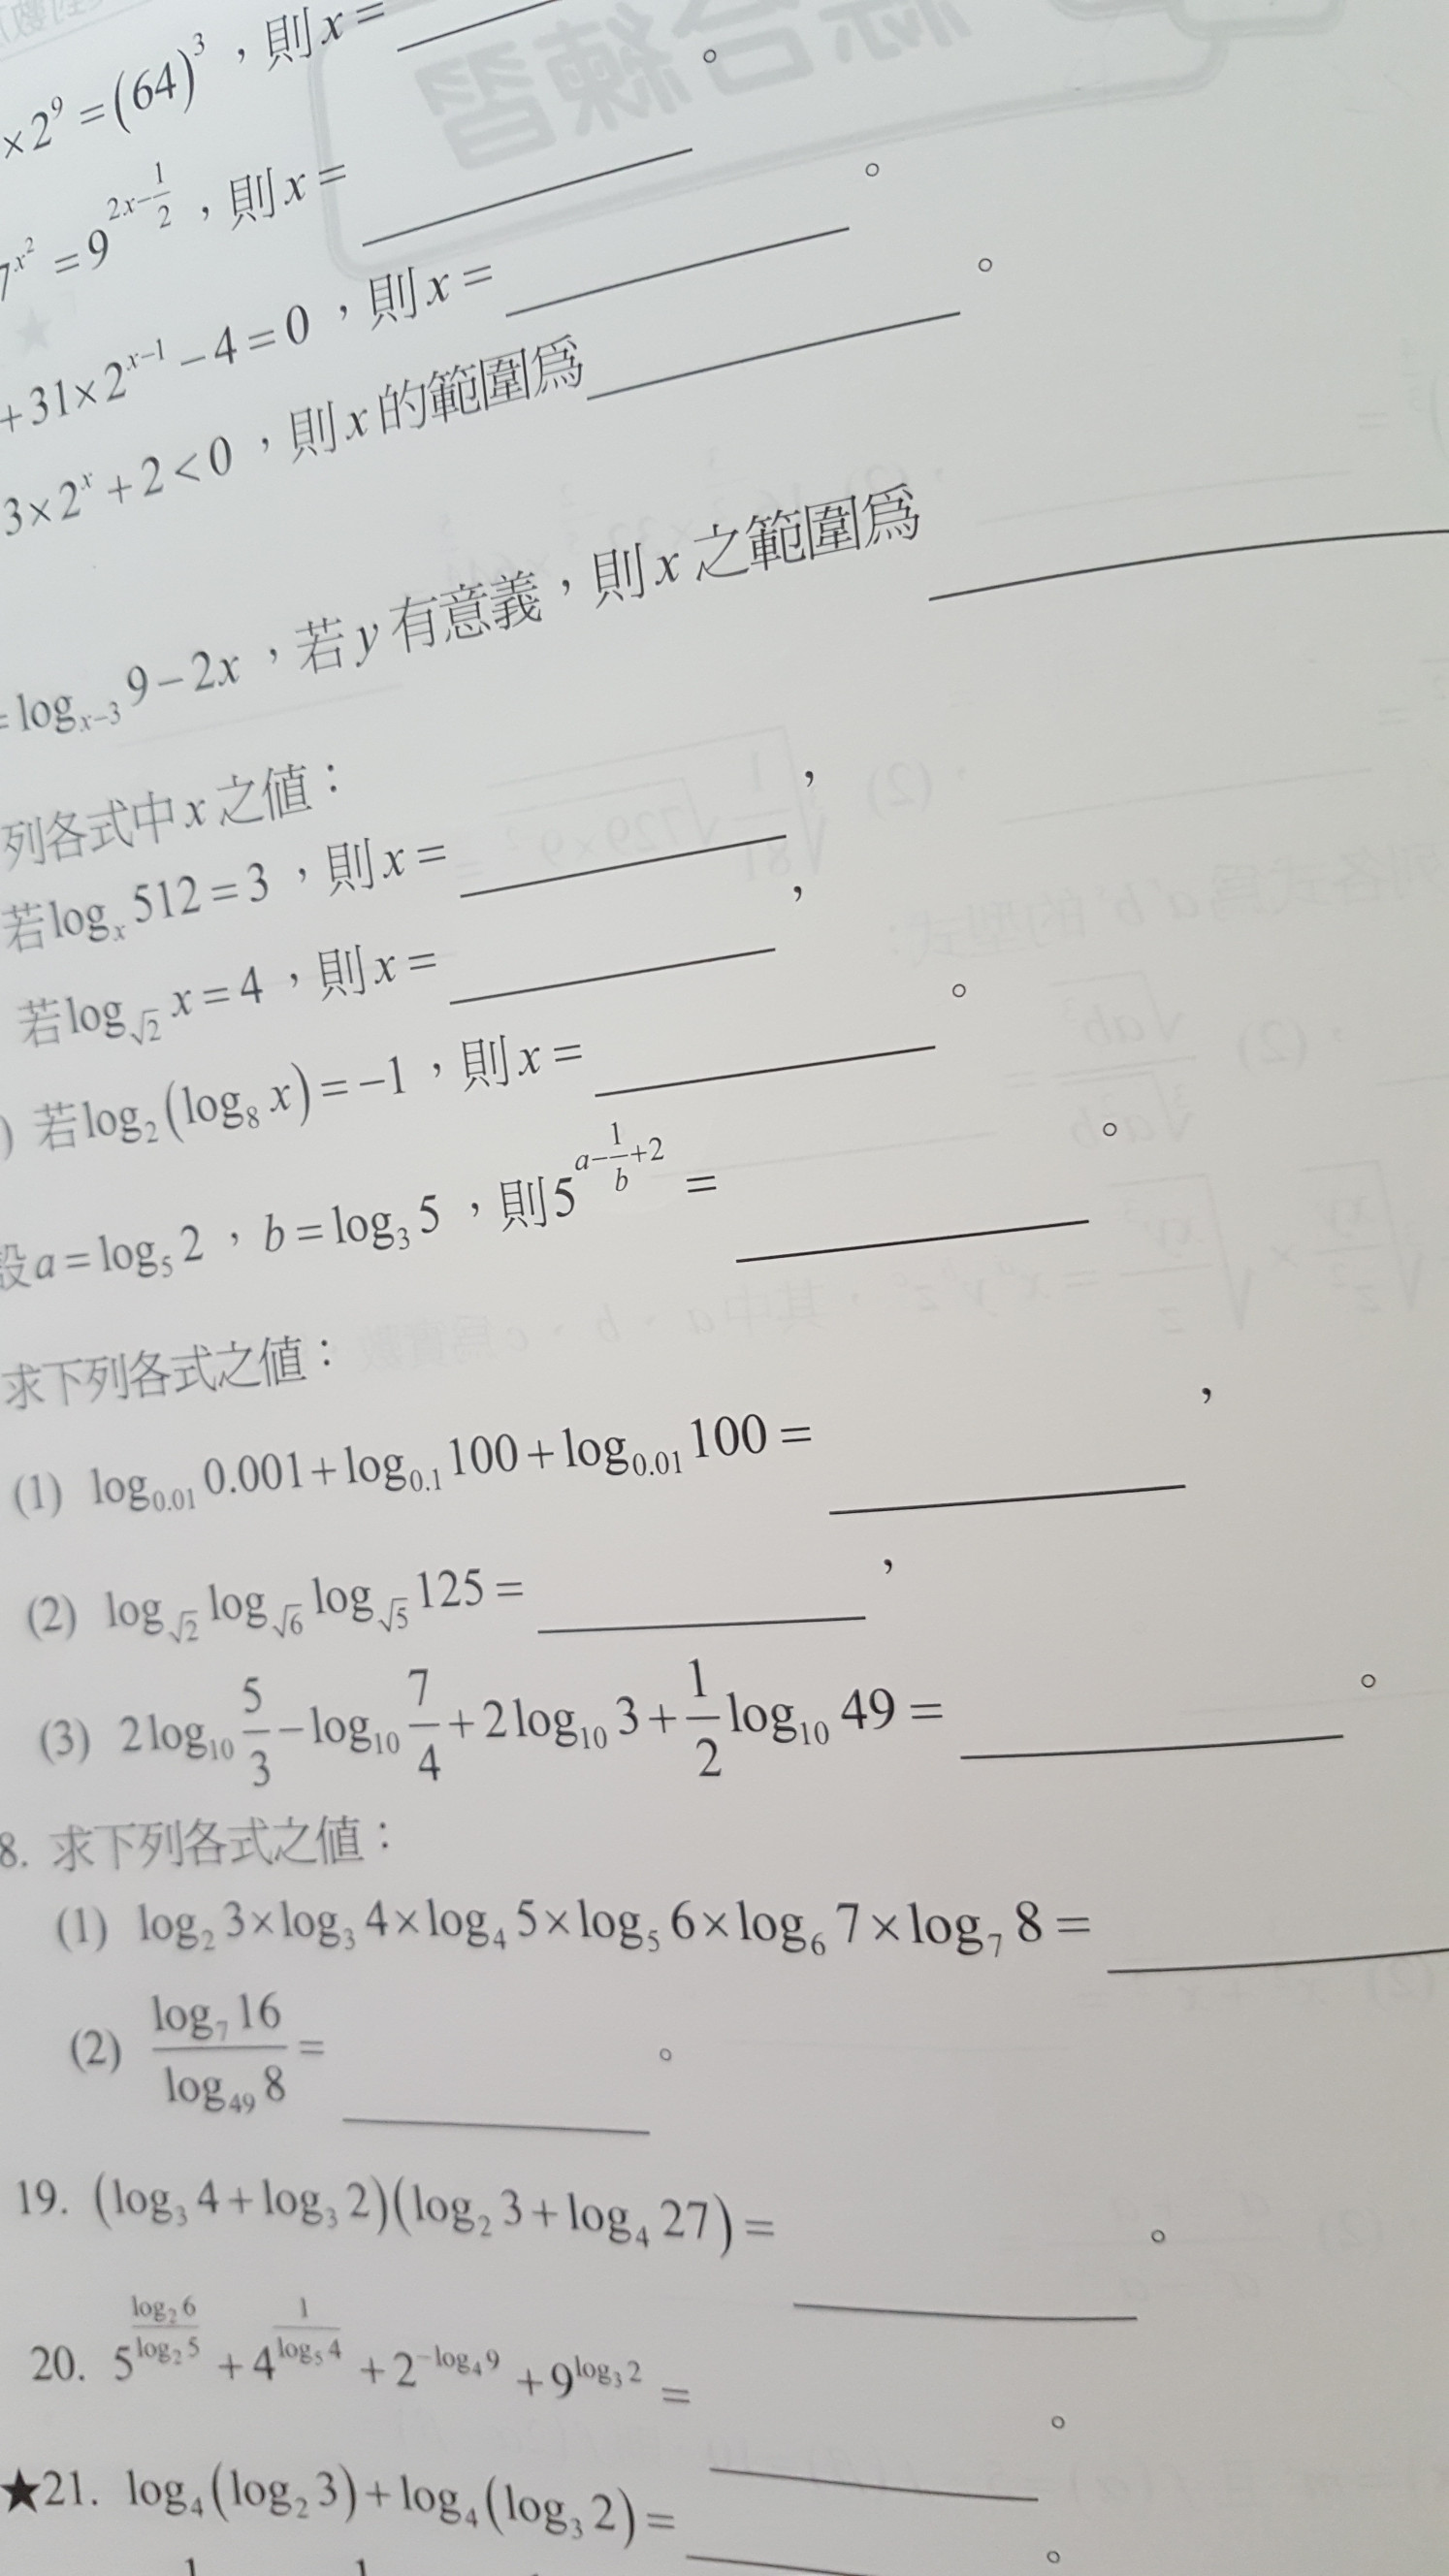 ×2⁹=(64)³，則x=
7^{x²}=9^{2x-1/2}，則x=。
+31×2^{x-1}-4=0，則x=。
3×2^x+2<0，則x的範圍為。
=log_{x-3} 9-2x，若y有意義，則x之範圍為
列各式中x之值：
若log_x 512=3，則x=，
若log_{√2} x=4，則x=，
) 若log₂(log₈ x)=-1，則x=。
設a=log₅ 2，b=log₃ 5，則5^{a-1/b+2}=。
求下列各式之值：
(1) log_{0.01} 0.001+log_{0.1} 100+log_{0.01} 100=，
(2) log_{√2} log_{√6} log_{√5} 125=，
(3) 2log₁₀ 5/3-log₁₀ 7/4+2log₁₀ 3+1/2 log₁₀ 49=。
8. 求下列各式之值：
(1) log₂ 3×log₃ 4×log₄ 5×log₅ 6×log₆ 7×log₇ 8=
(2) log₇ 16/log₄₉ 8=。
19. (log₃ 4+log₃ 2)(log₂ 3+log₄ 27)=。
20. 5^{log₂ 6/log₂ 5}+4^{1/log₅ 4}+2^{-log₄ 9}+9^{log₃ 2}=。
★21. log₄(log₂ 3)+log₄(log₃ 2)=。